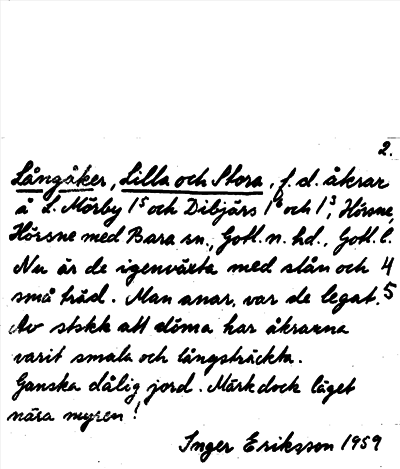 2.
Långåker, Lilla och Stora, f.d. åkrar
å L. Mörby 1⁵ och Dibjärs 1⁶ och 1³, Hörsne,
Hörsne med Bara sn., Gotl. n. hd., Gotl. l.
Nu är de igenväxta med slån och 4
små träd. Man anar, var de legat. 5
Av stskk att döma har åkrarna
varit smala och långsträckta.
Ganska dålig jord. Märk dock läget
nära myren!
Inger Eriksson 1959